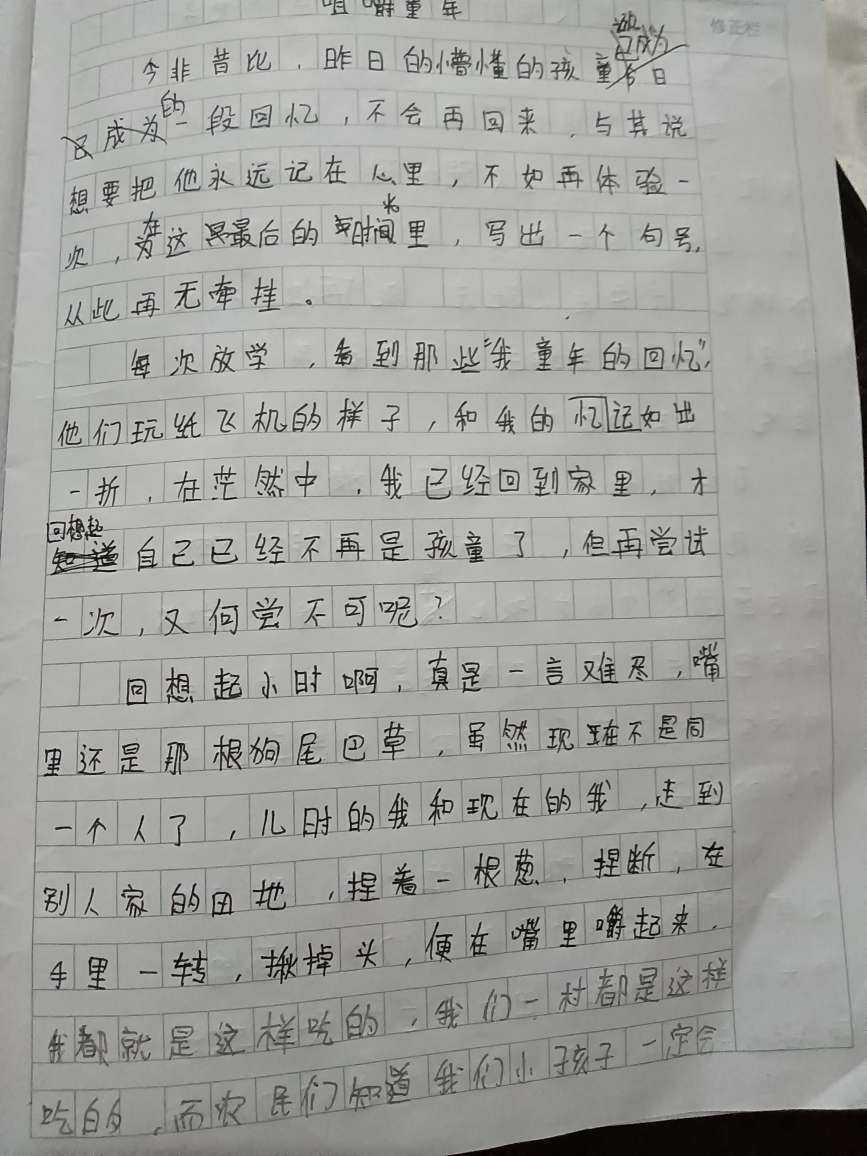 咀嚼童年
修正栏
今非昔比，昨日的懵懂的孩童
已成为
成为的一段回忆，不会再回来，与其说
想要把他永远记在心里，不如再体验一
次，在这最后的时光里，写出一个句号，
从此再无牵挂。
每次放学，看到那些“我童年的回忆”，
他们玩纸飞机的样子，和我的忆记如出
一折，在茫然中，我已经回到家里，才
回想起
自己已经不再是孩童了，但再尝试
一次，又何尝不可呢？
回想起小时啊，真是一言难尽，嘴
里还是那根狗尾巴草，虽然现在不是同
一个人了，儿时的我和现在的我，走到
别人家的田地，捏着一根葱，捏断，在
手里一转，揪掉头，便在嘴里嚼起来，
我都就是这样吃的，我们一村都是这样
吃的，而农民们知道我们小孩子一定会